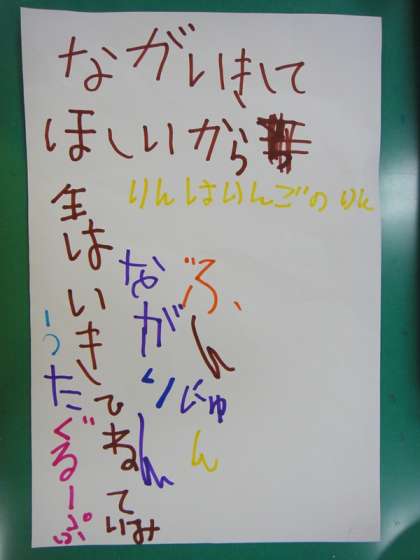 ながいきして
ほしいから
りんはりんごの りん
生はいきてねていみ
ながりん
ぶんにゅん
うたぐるーぷ